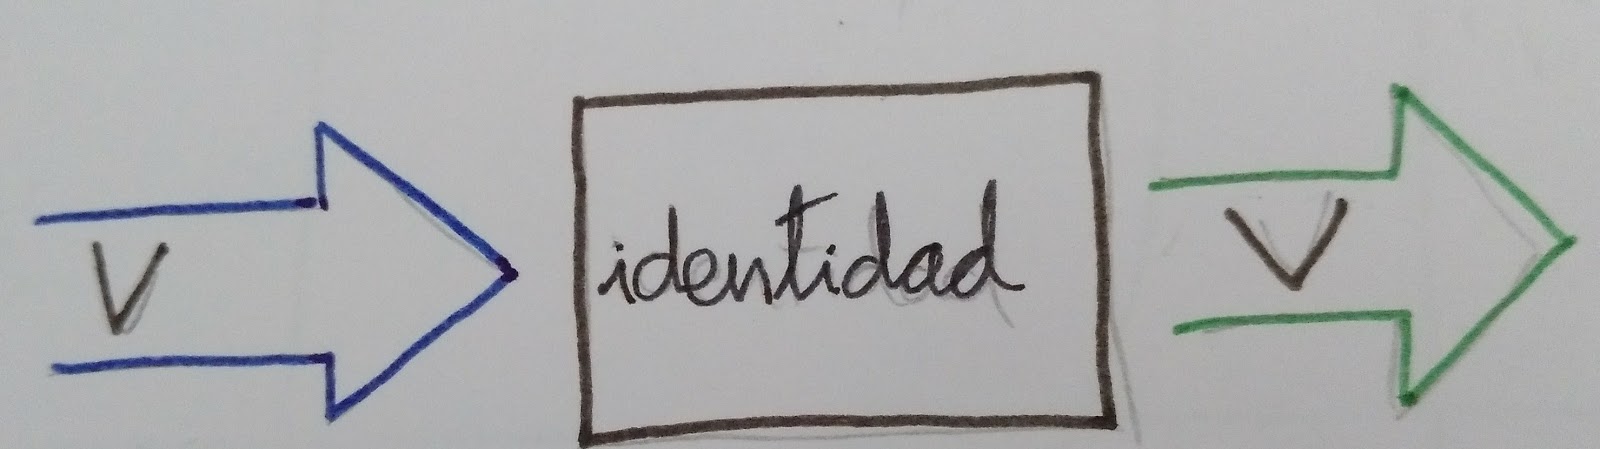 V identidad V